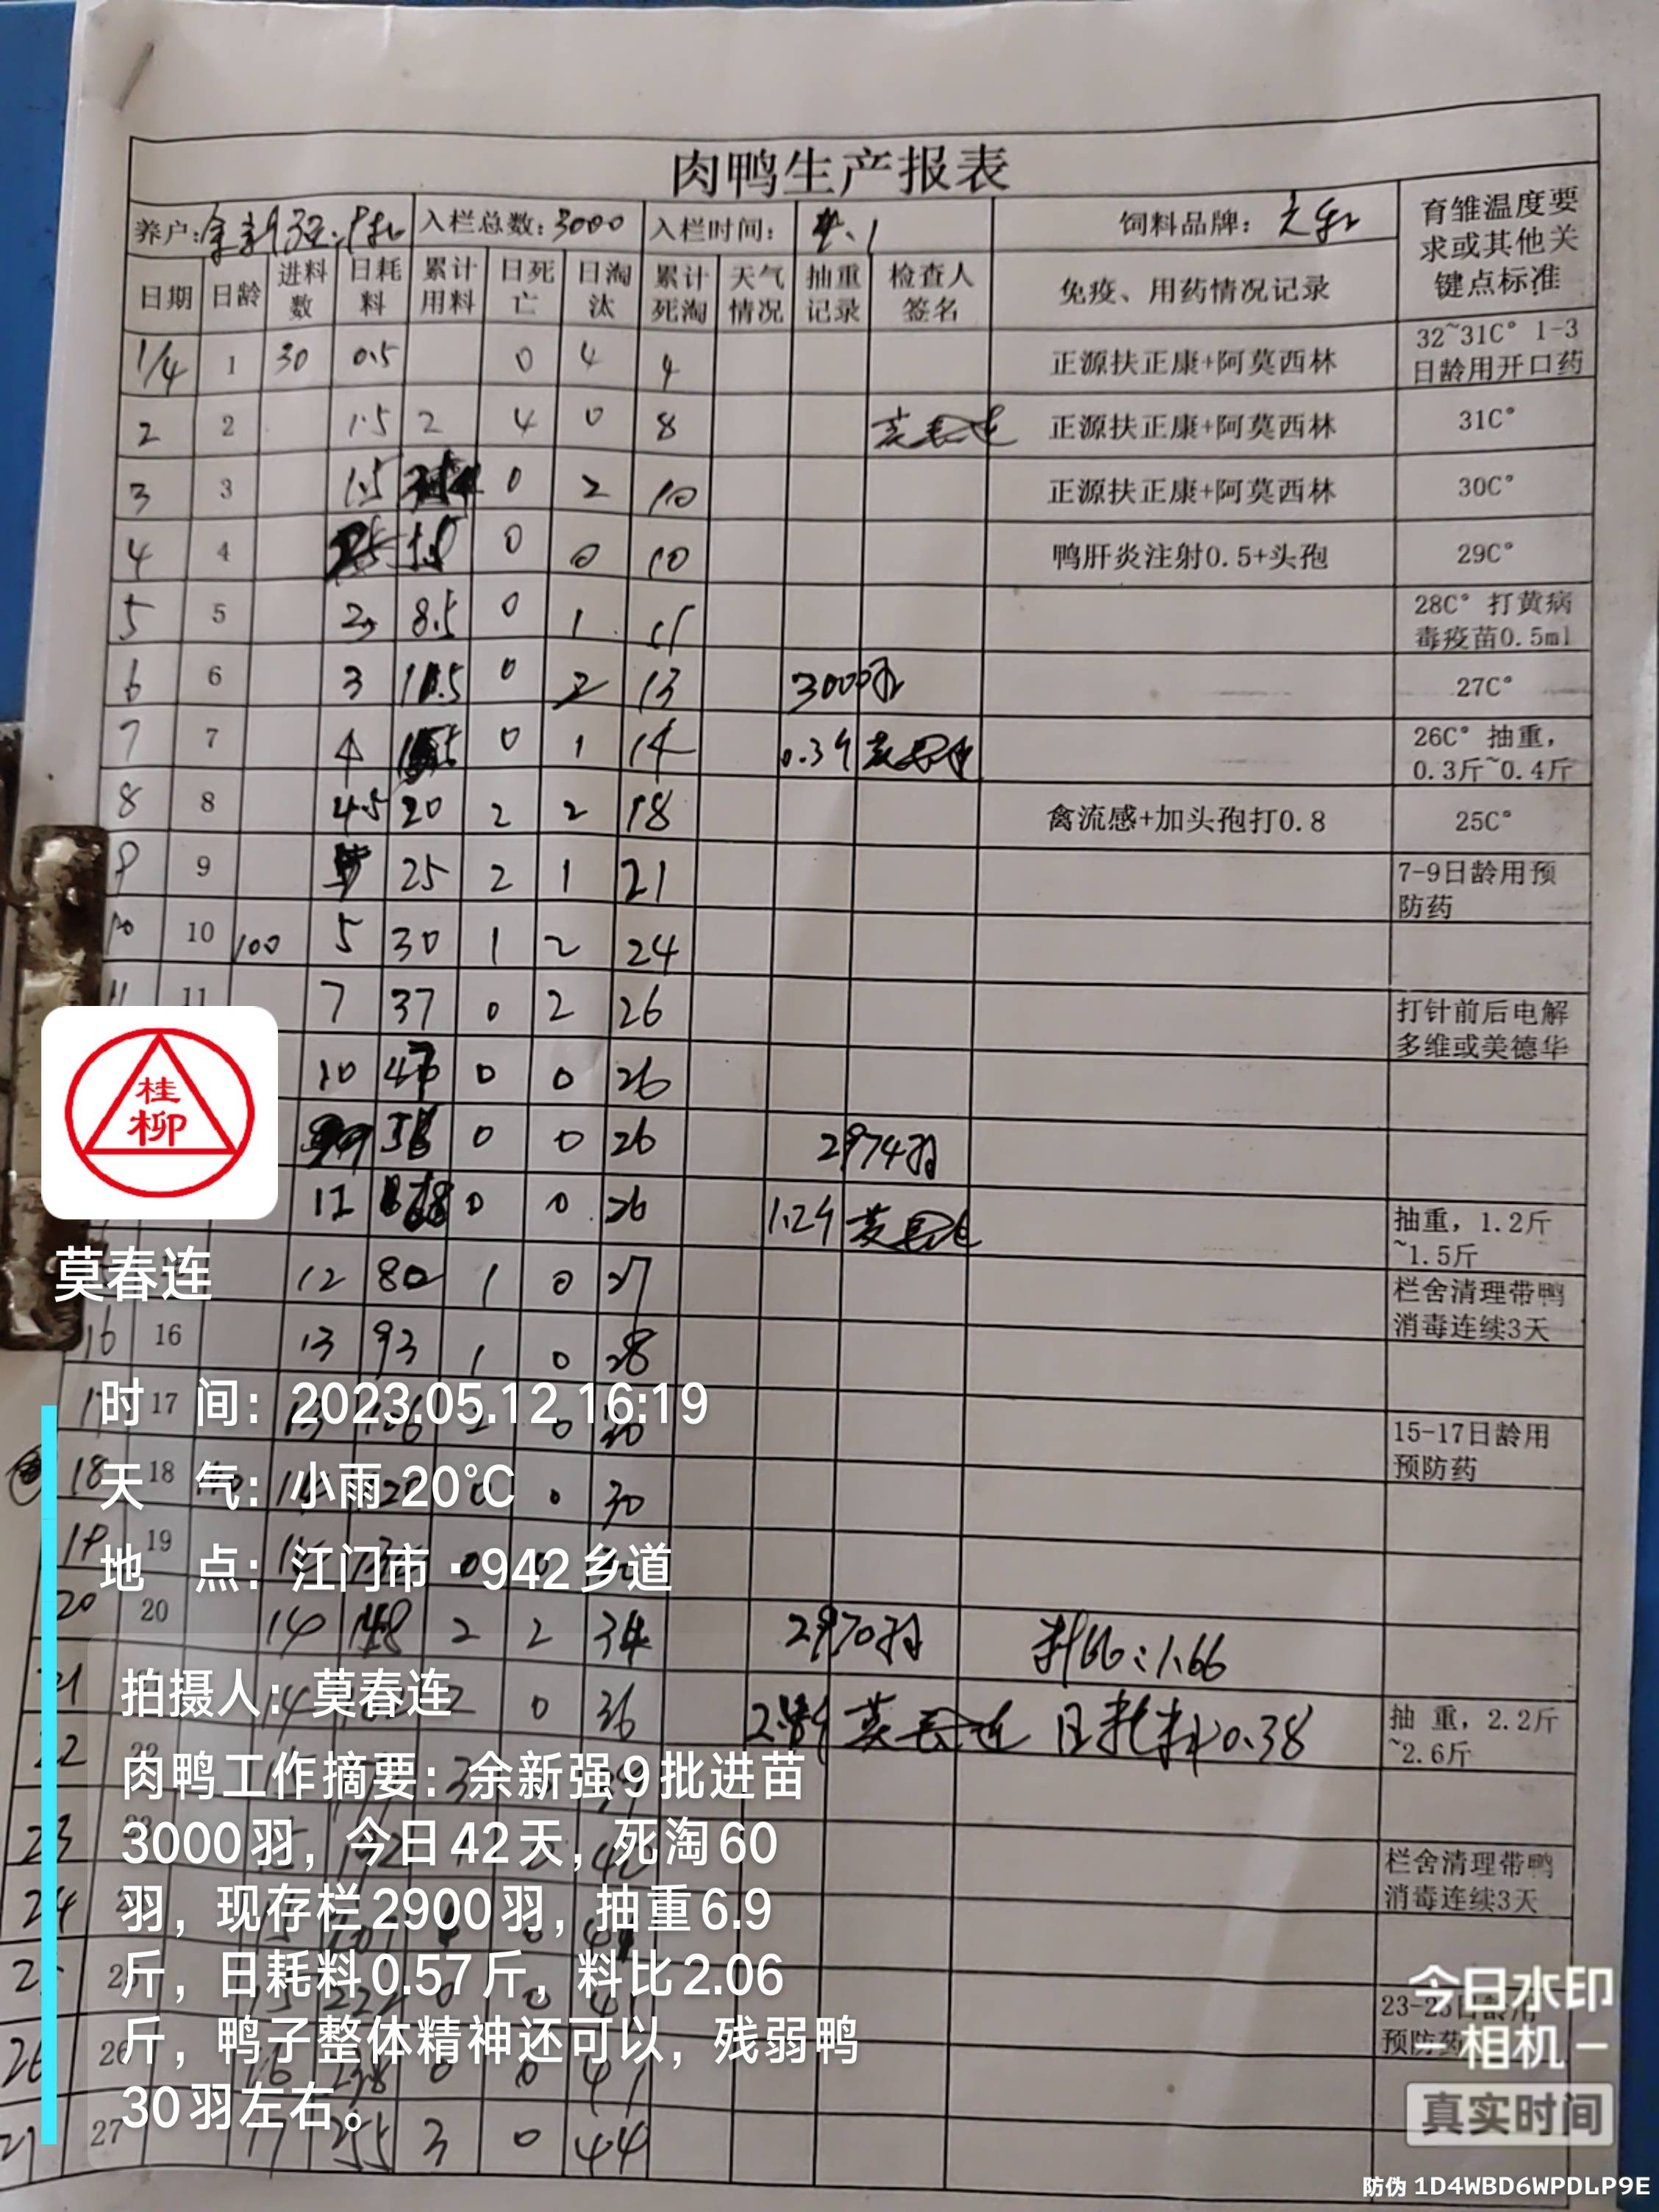 肉鸭生产报表
养户: 入栏总数:3000 入栏时间: 饲料品牌: 育雏温度要求或其他关键点标准
日期 日龄 进料数 日耗料 累计用料 日死亡 日淘汰 累计死淘 天气情况 抽重记录 检查人签名 免疫、用药情况记录
1/4 1 30 0.5 0 4 4 正源扶正康+阿莫西林 32~31C° 1-3日龄用开口药
2 2 1.5 2 4 0 8 莫春连 正源扶正康+阿莫西林 31C°
3 3 1.5 0 2 10 正源扶正康+阿莫西林 30C°
4 4 0 0 10 鸭肝炎注射0.5+头孢 29C°
5 5 8.5 0 1 11 28C° 打黄病毒疫苗0.5ml
6 6 3 0 2 13 3000羽 27C°
7 7 4 0 1 14 0.3斤 莫春连 26C° 抽重，0.3斤~0.4斤
8 8 4.5 20 2 2 18 禽流感+加头孢打0.8 25C°
9 9 25 2 1 21 7-9日龄用预防药
10 10 100 5 30 1 2 24
11 11 7 37 0 2 26 打针前后电解多维或美德华
10 47 0 0 26
0 0 26 2974羽
12 68 0 0 26 1.2斤 莫春连 抽重，1.2斤~1.5斤
12 80 1 0 27 栏舍清理带鸭消毒连续3天
16 16 13 93 1 0 28
17 17 13 106 2 0 30 15-17日龄用预防药
18 18 14 120 0 0 30
19 19 0 0
20 20 14 148 2 2 34 2970羽 料比:1.66
21 14 2 0 36 莫春连 日耗料0.38 抽 重，2.2斤~2.6斤
22 22 3
23 栏舍清理带鸭消毒连续3天
24
25 15 222 0 0 41 23-25日龄用预防药
26 26 16 238 0 0 41
27 17 255 3 0 44
桂柳
莫春连
时 间: 2023.05.12 16:19
天 气: 小雨 20℃
地 点: 江门市·942乡道
拍摄人: 莫春连
肉鸭工作摘要: 余新强9批进苗
3000羽，今日42天，死淘60
羽，现存栏2900羽，抽重6.9
斤，日耗料0.57斤，料比2.06
斤，鸭子整体精神还可以，残弱鸭
30羽左右。
今日水印
相机
真实时间
防伪 1D4WBD6WPDLP9E